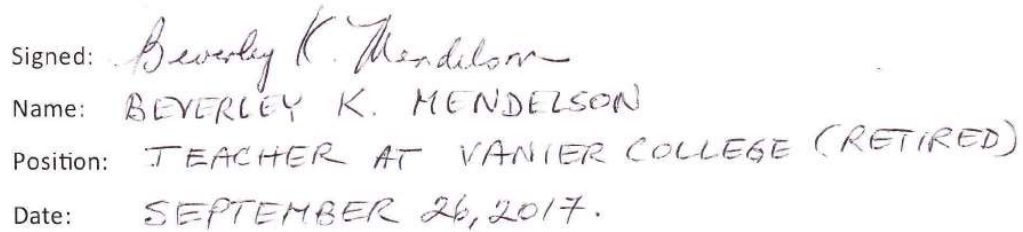 Signed: Beverley K. Mendelson
Name: BEVERLEY K. MENDELSON
Position: TEACHER AT VANIER COLLEGE (RETIRED)
Date: SEPTEMBER 26, 2017.